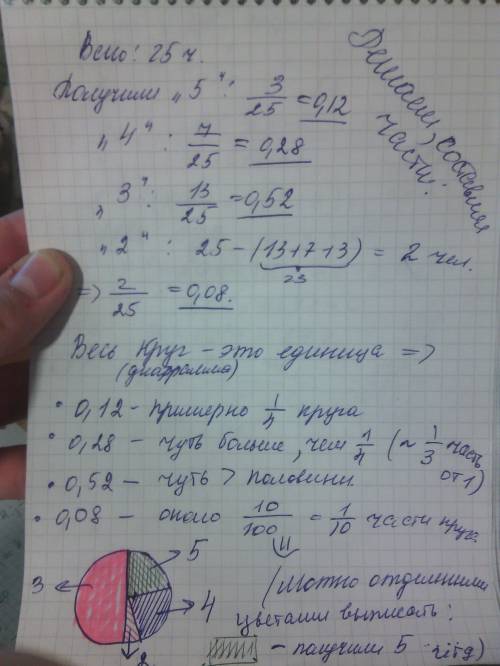 Всего: 25 ч.
Решаем, составляя
части:
Получили „5“: 3/25 = 0,12
„4“: 7/25 = 0,28
„3“: 13/25 = 0,52
„2“: 25 - (13+7+3) = 2 чел.
23
=> 2/25 = 0,08.
Весь круг - это единица =>
(диаграмма)
• 0,12 - примерно 1/4 круга
• 0,28 - чуть больше, чем 1/4 (~ 1/3 часть
от 1)
• 0,52 - чуть > половины
• 0,08 - около 10/100 = 1/10 части круга.
5
3
4
2
(можно отдельными
цветами выписать:
- получили 5 и т д)